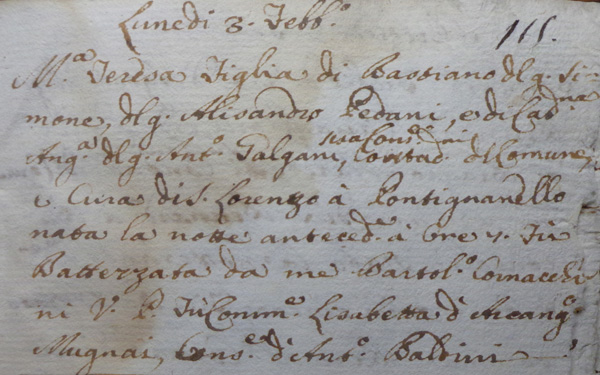 Lunedi 3. Febb.º 111.
M.ª Teresa Figlia di Bastiano dl q. Si=
mone, dl q. Alisandro Pedani, e di Cat.na
Ang.ª dl q. Ant.º Galgani, sua Cons.e Contad.ni di Comune,
e Cura di S. Lorenzo à Pontignanello
nata la notte anteced.e à ore 7. Fù
Battezzata da me Bartol.º Cornacchi=
ni V. P. Fù Comm.e Lisabetta d'Arcang.º
Mugnai, Cons.e d'Ant.º Baldini